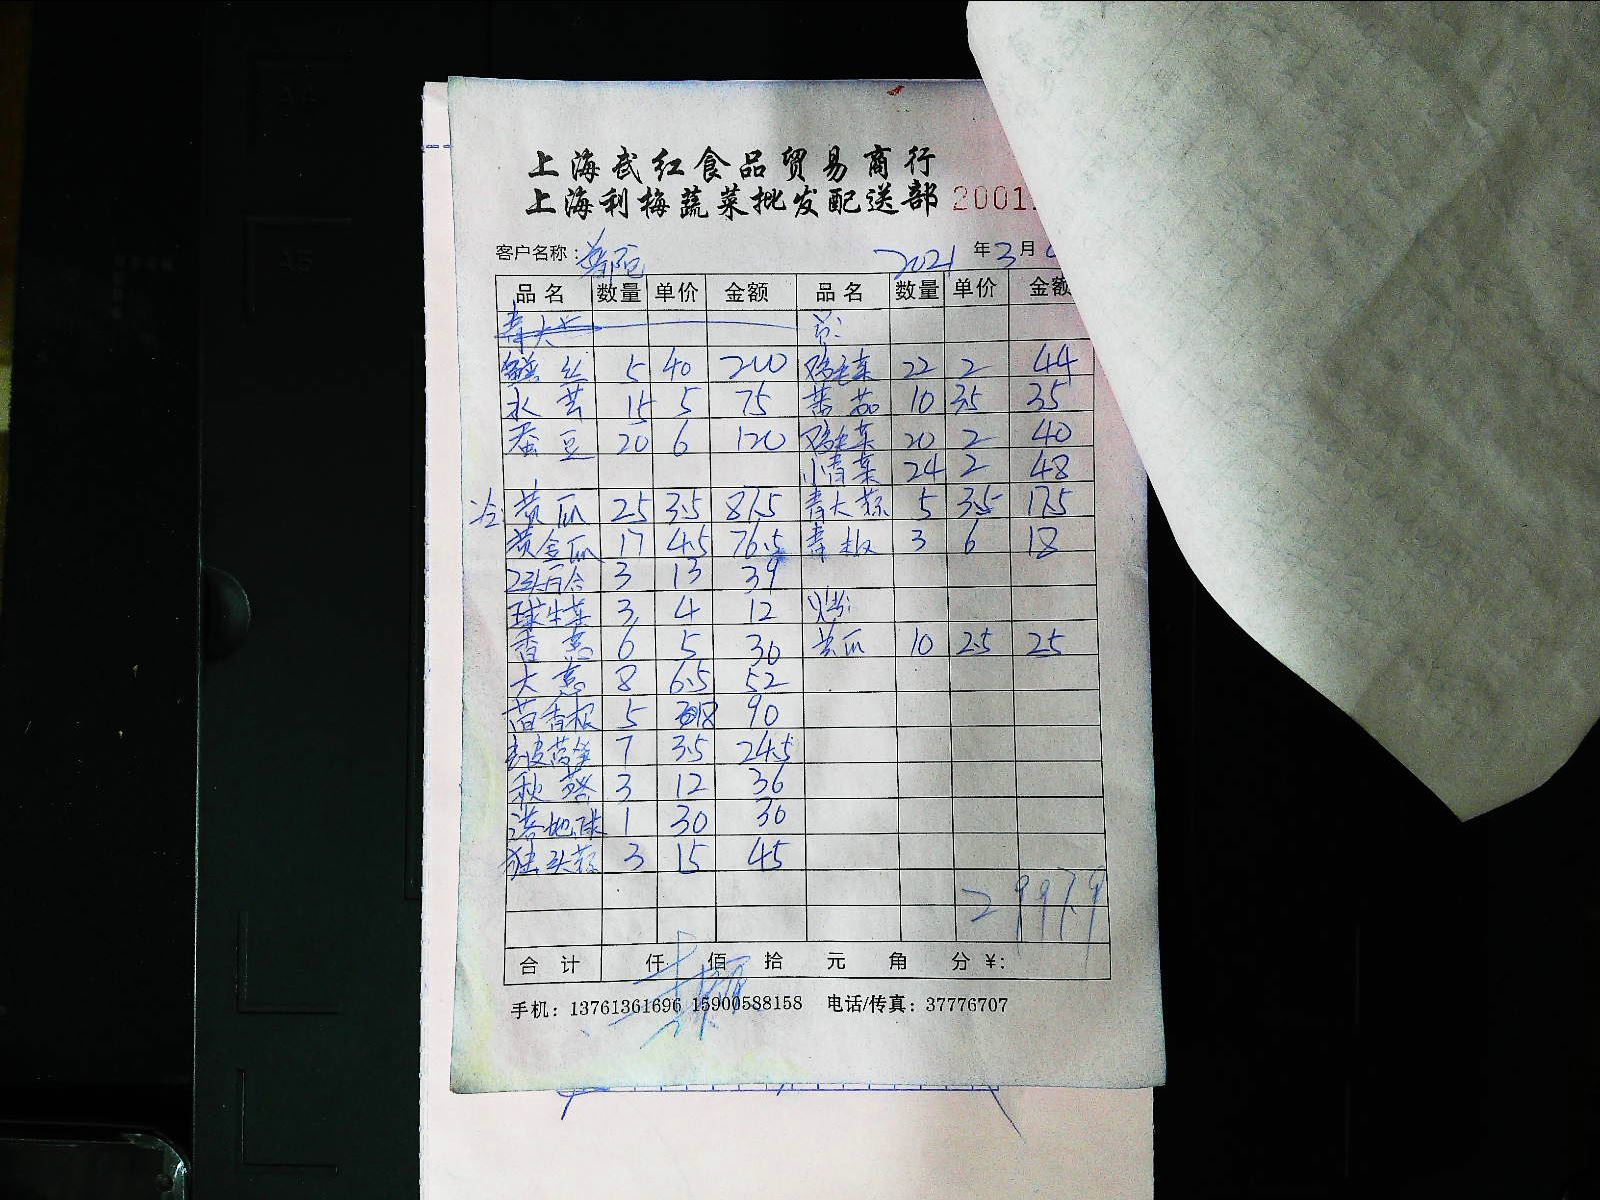 上海武红食品贸易商行
上海利梅蔬菜批发配送部 2001
客户名称: 普陀 2021年3月
品名 数量 单价 金额 品名 数量 单价 金额
青大
鳝丝 5 40 200 鸡毛菜 22 2 44
水芸 15 5 75 蕃茄 10 3.5 35
蚕豆 20 6 120 鸡毛菜 20 2 40
小青菜 24 2 48
冷: 黄瓜 25 3.5 87.5 青大蒜 5 3.5 17.5
黄金瓜 17 4.5 76.5 青椒 3 6 18
2头百合 3 13 39
球生菜 3 4 12
香葱 6 5 30 黄瓜 10 2.5 25
大葱 8 6.5 52
茴香根 5 18 90
青皮莴笋 7 3.5 24.5
秋葵 3 12 36
洪地球 1 30 30
独头蒜 3 15 45
2997.9
合计 仟 佰 拾 元 角 分 ¥:
手机: 13761361696 15900588158 电话/传真: 37776707